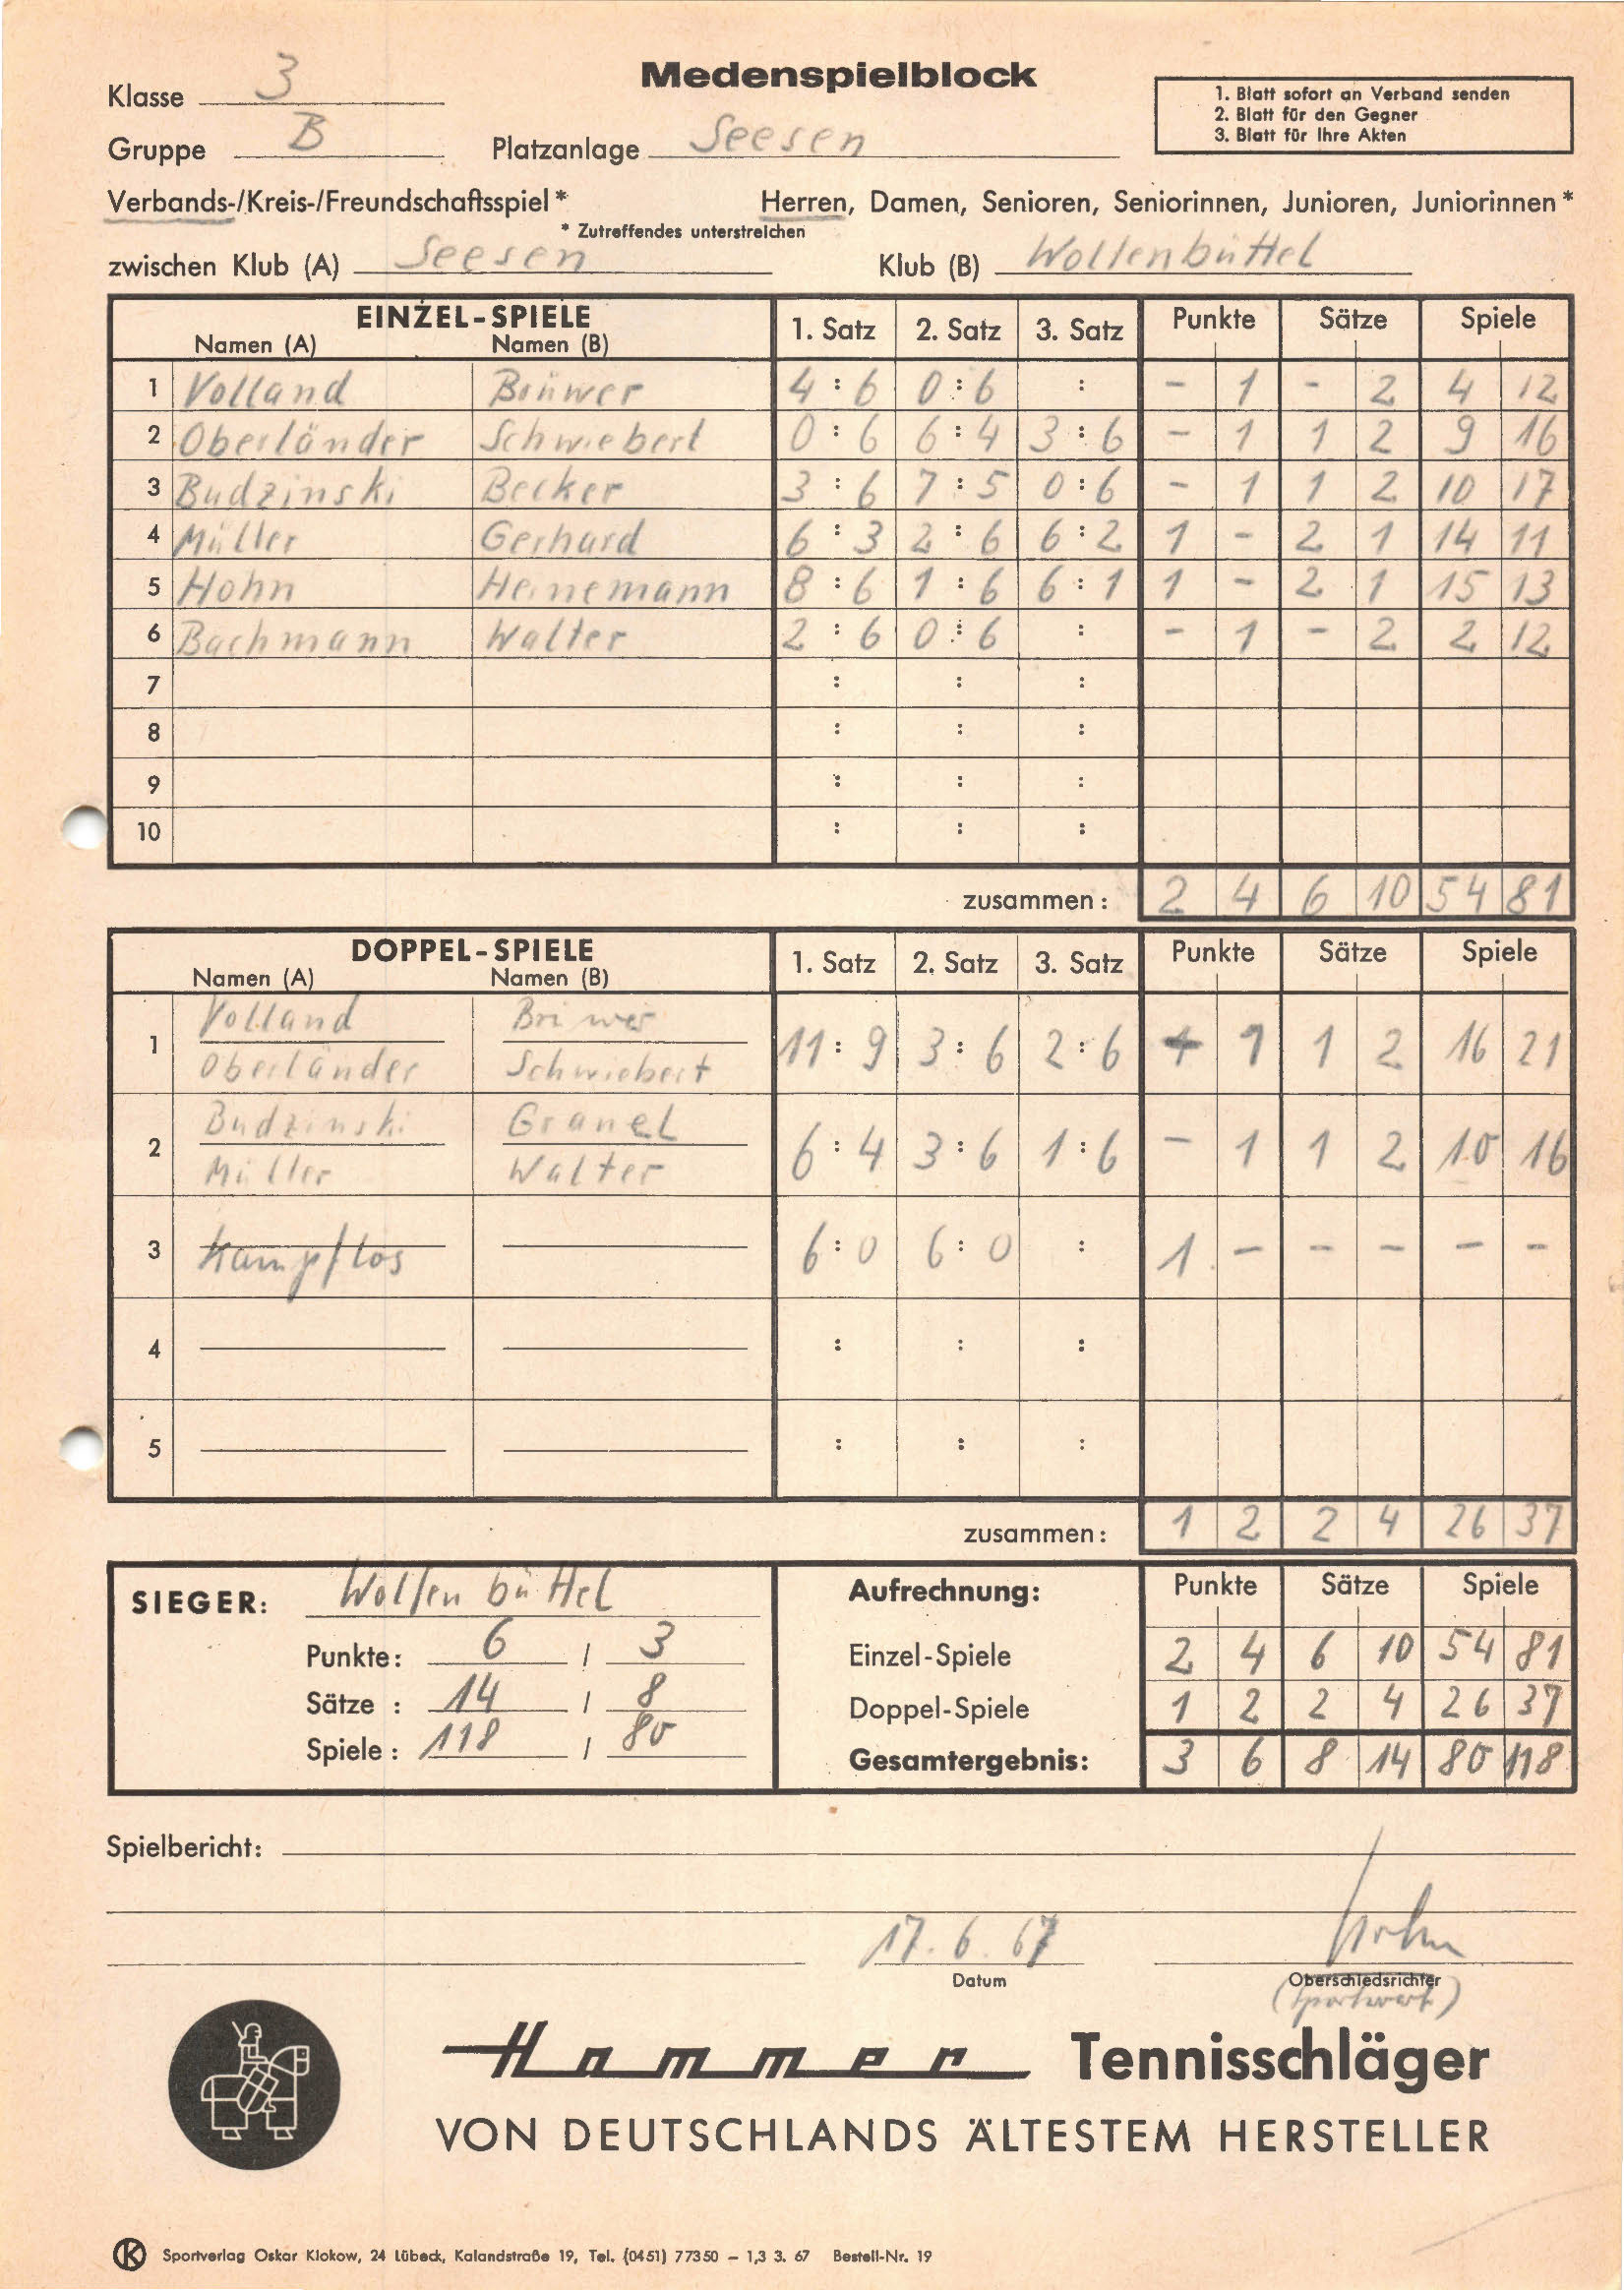 Medenspielblock
Klasse 3
1. Blatt sofort an Verband senden
2. Blatt für den Gegner
3. Blatt für Ihre Akten
Gruppe B Platzanlage Seesen
Verbands-/Kreis-/Freundschaftsspiel * Herren, Damen, Senioren, Seniorinnen, Junioren, Juniorinnen *
* Zutreffendes unterstreichen
zwischen Klub (A) Seesen Klub (B) Wolfenbüttel
EINZEL-SPIELE 1. Satz 2. Satz 3. Satz Punkte Sätze Spiele
Namen (A) Namen (B)
1 Volland Brüwer 4 : 6 0 : 6 : - 1 - 2 4 12
2 Oberländer Schwiebert 0 : 6 6 : 4 3 : 6 - 1 1 2 9 16
3 Budzinski Becker 3 : 6 7 : 5 0 : 6 - 1 1 2 10 17
4 Müller Gerhard 6 : 3 2 : 6 6 : 2 1 - 2 1 14 11
5 Hohn Heinemann 8 : 6 1 : 6 6 : 1 1 - 2 1 15 13
6 Bachmann Walter 2 : 6 0 : 6 : - 1 - 2 2 12
7 : : :
8 : : :
9 : : :
10 : : :
zusammen: 2 4 6 10 54 81
DOPPEL-SPIELE 1. Satz 2. Satz 3. Satz Punkte Sätze Spiele
Namen (A) Namen (B)
Volland Brüwer
1 11 : 9 3 : 6 2 : 6 1 1 2 16 21
Oberländer Schwiebert
Budzinski Granel
2 6 : 4 3 : 6 1 : 6 - 1 1 2 10 16
Müller Walter
3 Kampflos 6 : 0 6 : 0 : 1 - - - - -
4 : : :
5 : : :
zusammen: 1 2 2 4 26 37
SIEGER: Wolfenbüttel Aufrechnung: Punkte Sätze Spiele
Punkte: 6 / 3 Einzel-Spiele 2 4 6 10 54 81
Sätze : 14 / 8 Doppel-Spiele 1 2 2 4 26 37
Spiele : 118 / 80 Gesamtergebnis: 3 6 8 14 80 118
Spielbericht:
17. 6. 67 Hohn
Datum Oberschiedsrichter
(Sportwart)
Hammer Tennisschläger
VON DEUTSCHLANDS ÄLTESTEM HERSTELLER
K Sportverlag Oskar Klokow, 24 Lübeck, Kalandstraße 19, Tel. (0451) 77350 – 1,3 3. 67 Bestell-Nr. 19